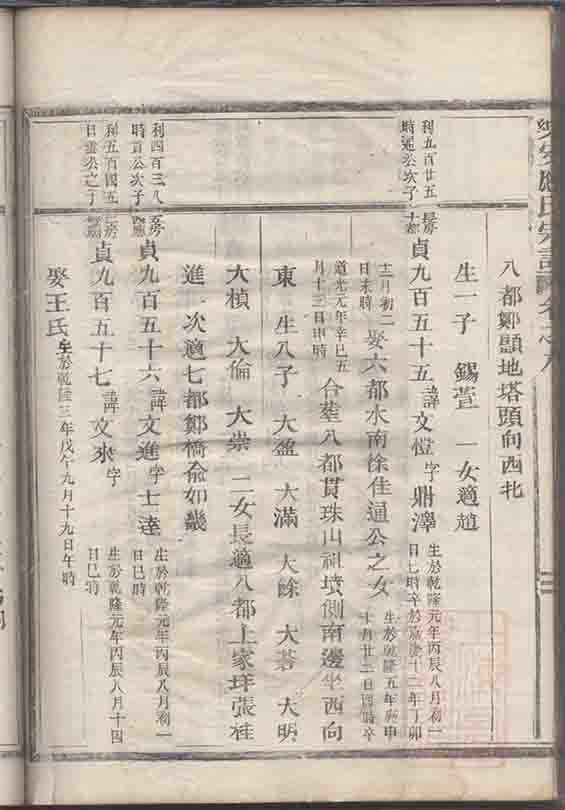 八都鄭顯地塔頭向西北
生一子 錫萱 一女適趙
利九百廿五長房
時運公次子
貞九百五十五 諱 文愷 字 鼎澤
生於乾隆元年丙辰八月初一
日巳時卒於嘉慶十二年丁卯
十二月初二
日未時
娶六都水南徐佳通公之女
生於乾隆五年庚申
十月廿二日酉時卒
道光元年辛巳五
月十三日申時
合葬八都貫珠山祖墳側南邊坐西向
東 生八子 大盈 大滿 大餘 大蒼 大明
大楨 大倫 大崇 二女長適八都上家垟張桂
進 次適七都鄭橋俞如畿
利四百三八
時首公次子
貞九百五十六 諱 文進 字 士達
生於乾隆元年丙辰八月初一
日巳時
利五百四五二房
日雲公之子
貞九百五十七 諱 文來 字
生於乾隆元年丙辰八月十四
日巳時
娶王氏 生於乾隆三年戊午九月十九日午時